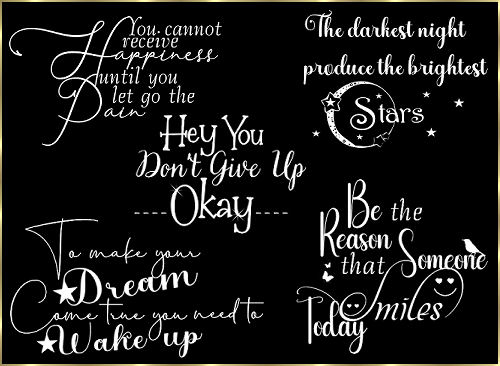 You cannot
receive
Happiness
until you
let go the
Pain
The darkest night
produce the brightest
Stars
Hey You
Don't Give Up
----Okay----
To make your
Dream
Come true you need to
Wake up
Be the
Reason
that Someone
Smiles
Today